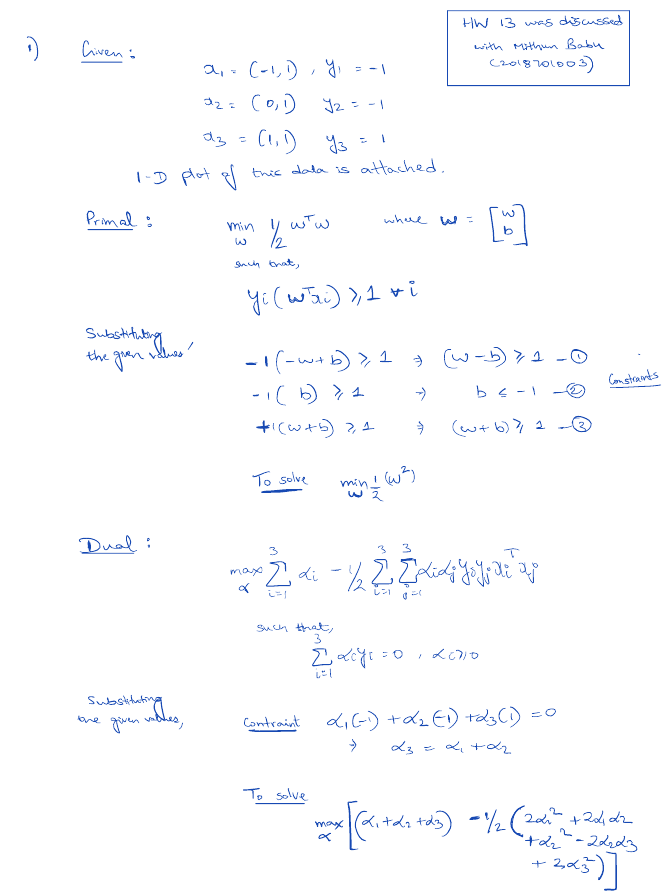 HW 13 was discussed
with Mithun Babu
(2018701003)
1) Given :
x₁ = (-1,1) , y₁ = -1
x₂ = (0,1) y₂ = -1
x₃ = (1,1) y₃ = 1
1-D plot of this data is attached.
Primal : min_w 1/2 wᵀw where w = [w b]
such that,
yi(wᵀxi) ≥ 1 ∀ i
Substituting
the given values,
-1(-w+b) ≥ 1 ⇒ (w-b) ≥ 1 - ①
-1( b) ≥ 1 ⇒ b ≤ -1 - ② Constraints
+1(w+b) ≥ 1 ⇒ (w+b) ≥ 1 - ③
To solve min_w 1/2 (w²)
Dual :
max_α Σ_{i=1}^{3} αi - 1/2 Σ_{i=1}^{3} Σ_{j=1}^{3} αiαj yiyj xiᵀxj
such that,
Σ_{i=1}^{3} αiyi = 0 , αi ≥ 0
Substituting
the given values, Contraint α₁(-1) + α₂(-1) + α₃(1) = 0
⇒ α₃ = α₁ + α₂
To solve
max_α [(α₁ + α₂ + α₃) - 1/2 (2α₁² + 2α₁α₂
+ α₂² - 2α₂α₃
+ 2α₃²)]